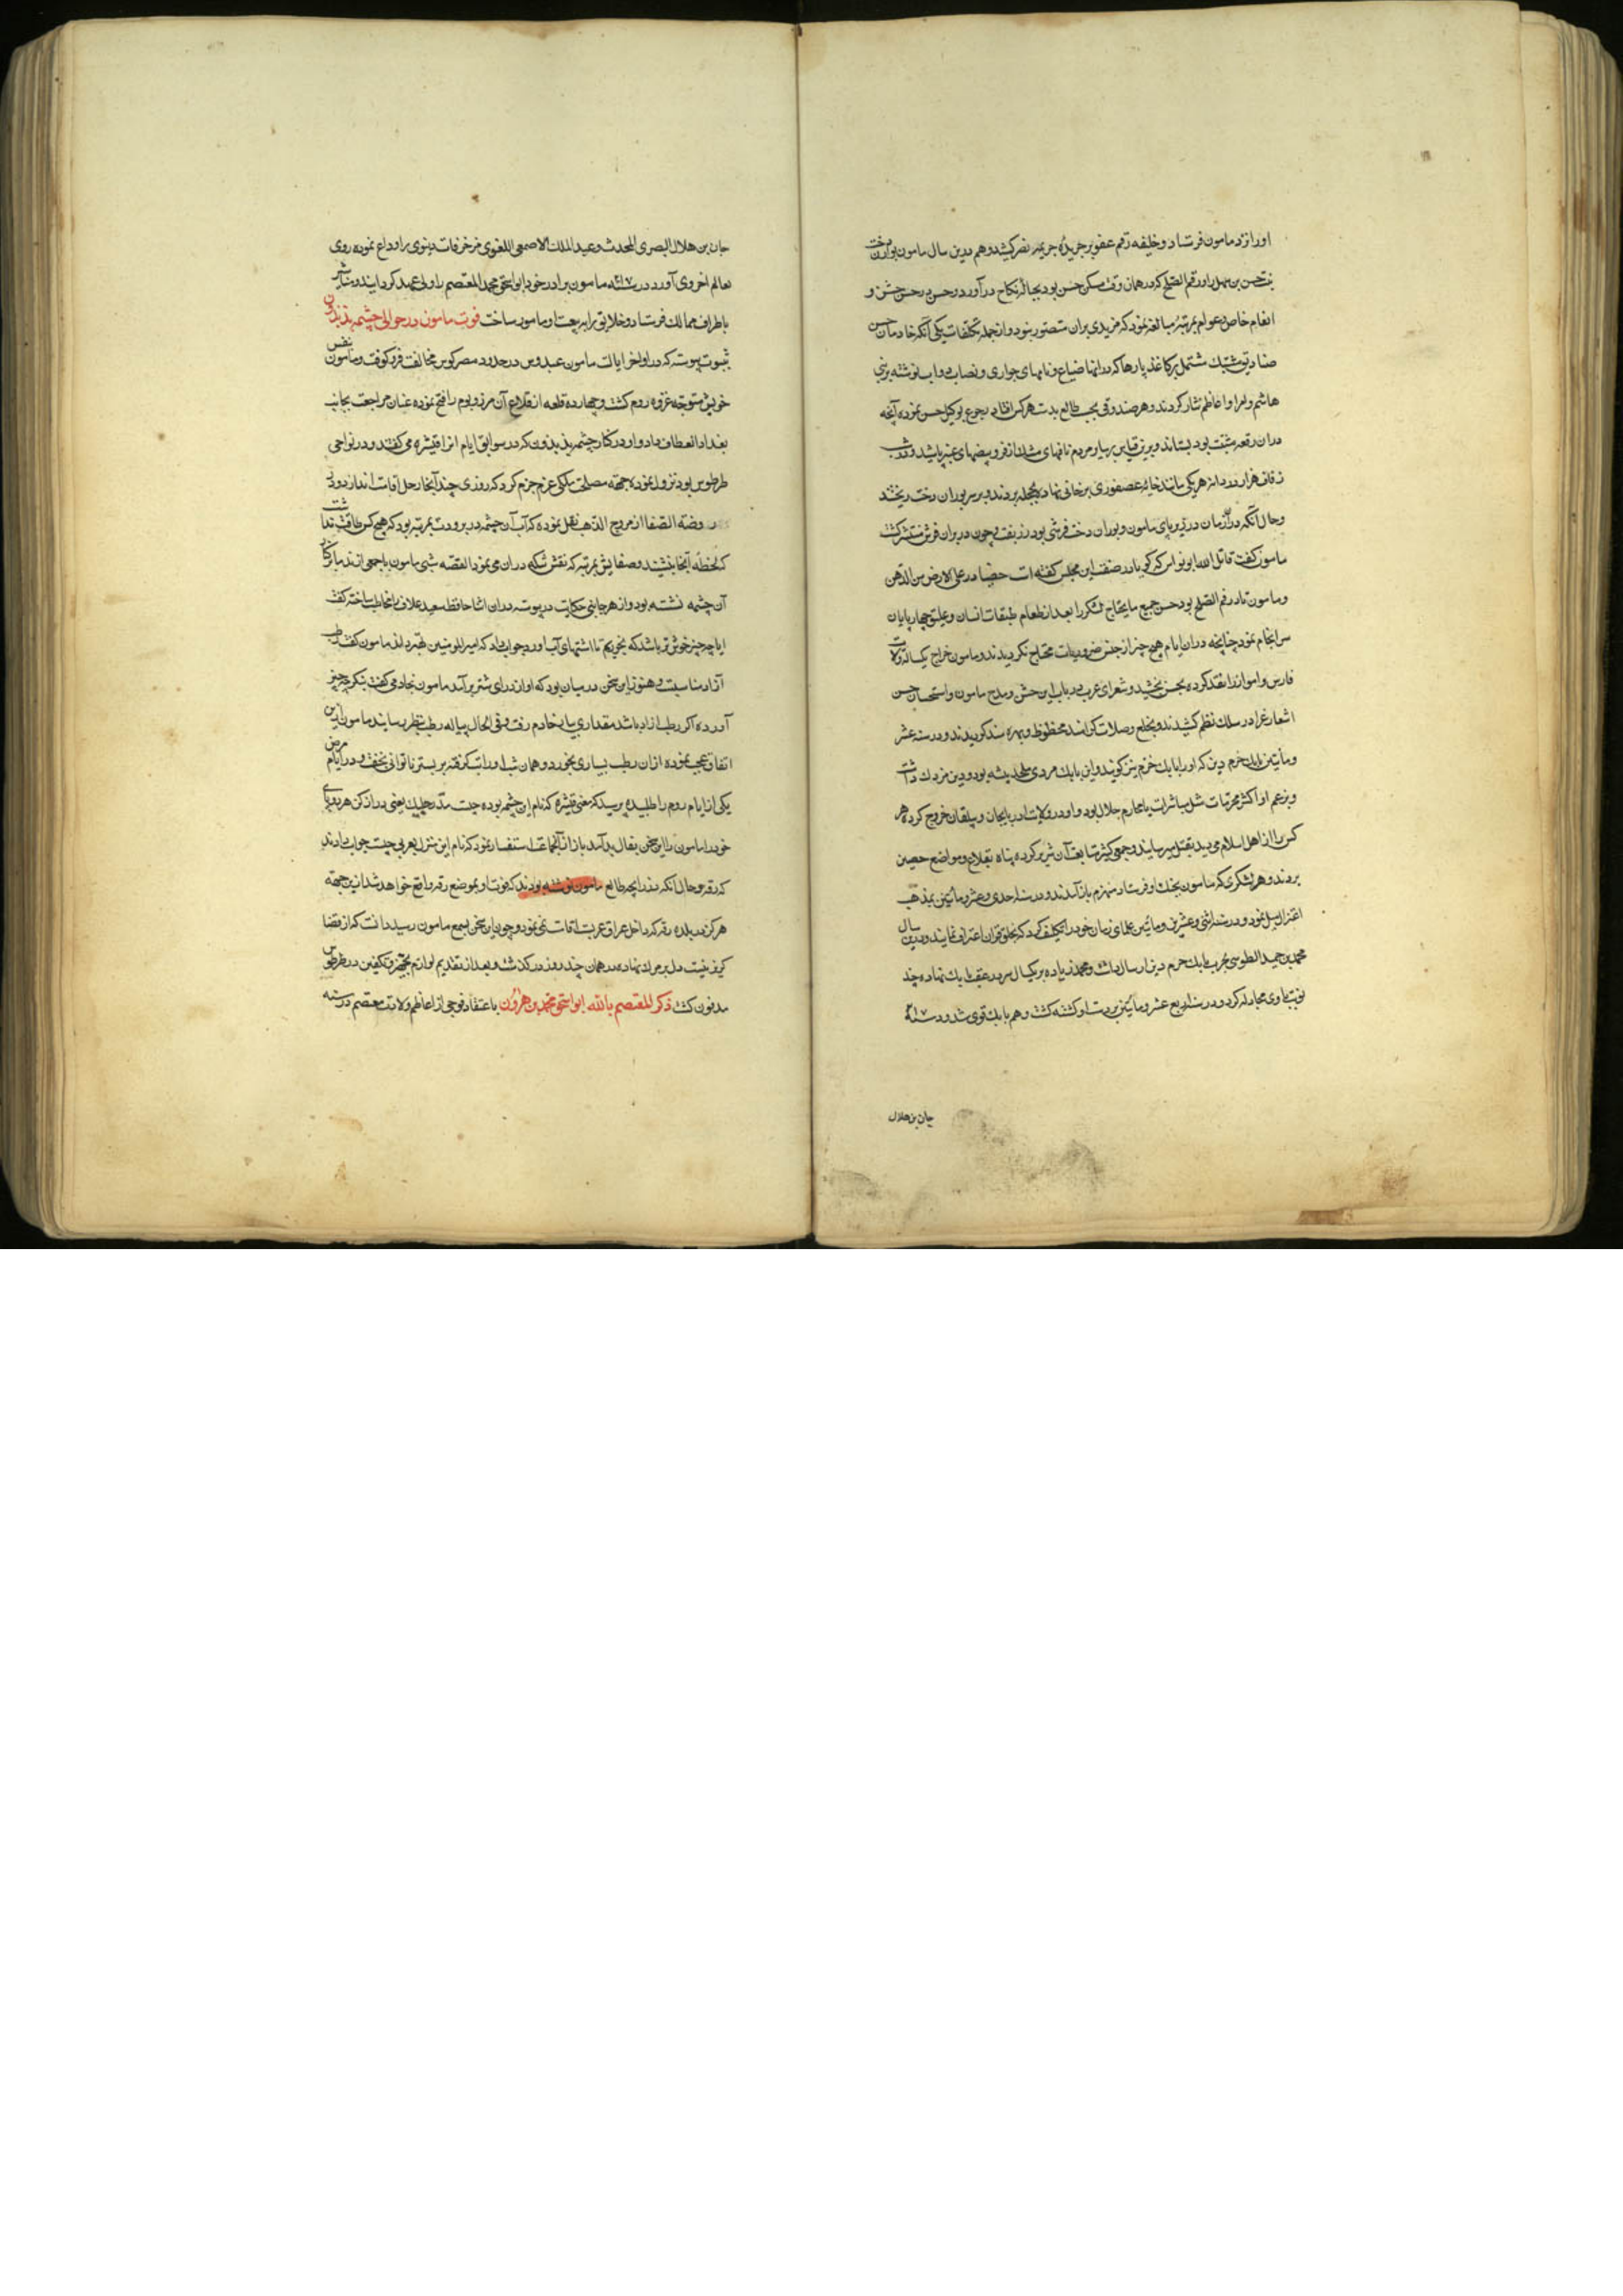 او را نزد مامون فرستاد و خلیفه رقم عفو بر جریدهٔ جریمه نصر کشید و هم درین سال مامون پوران دخت
بنت حسن بن سهل را در فم الصلح که در همان وقت مسکن حسن بود بحبالهٔ نکاح در آورد و حسن در حسن جشن و
انعام خاص و عوام بمرتبهٔ مبالغه نمود که مزیدی بران متصور نبود و از جمله تکلفات یکی آنکه خادمان حسن
صنادیق مشبک مشتمل بر کاغذ پارها که در انها ضیاع و نامهای جواری و نصاب دواب نوشته بر بنی
هاشم و امرا و اعاظم نثار کردند و هر صندوقی بحسب طالع بدست هر کس افتاد رجوع بوکیل حسن نموده آنچه
دران رقعه مثبت بود بستاند و برین قیاس بر سایر مردم نافهای مشک از فر و بیضهای عنبر پاشید و در شب
زفاف هزار دردانه هر یکی مانند خایه عصفوری بر خانی نهاده بحجله بردند و بر سر پوران دخت ریختند
و حال آنکه در آن زمان در زیر پای مامون و پوران دخت فرشی بود زربفت و چون در بران فرش منتشر کشت
مامون کفت قاتل الله ابو نواس که کویا در صفت این مجلس کفته است حصباء در علی الارض من الذهب
و مامون تا در فم الصلح بود حسن جمیع مایحتاج لشکر را بعد از طعام طبقات انسان و علیق چهار پایان
سرانجام نمود چنانچه دران ایام هیچ چیز از جنس ضروریات محتاج نکردیدند و مامون خراج یکساله ولایت
فارس و اهواز را نقد کرده بحسن بخشید و شعرای عرب در باب این جشن و مدح مامون و استحسان حسن
اشعار غرا در سلک نظم کشیدند و بخلع و صلات کرانمند محظوظ و بهره مند کردیدند و در سنه عشر
و مأتین بابک خرم دین که او را بابک خرم نیز کویند و این بابک مردی ملحد پیشه بود و دین مزدک داشت
و بزعم او اکثر محرمات مثل مباشرات با محارم حلال بود و او در ولایت اذربایجان و بیلقان خروج کرده هر
کس را از اهل اسلام می دید بقتل میرسانید و جمعی کثیر متابعت آن شریر کرده پناه بقلاع و مواضع حصین
بردند و هر لشکری که مامون بجنک او فرستاد منهزم باز آمدند و در سنه احدی و عشر و مأتین بمذهب
اعتزال میل نمود و در سنه اثنی و عشرین و مأتین علمای زمان خود را تکلیف کرد که بخلق قران اعتراف نمایند و درین سال
محمد بن حمید الطوسی بحرب بابک خرم دین ارسال داشت و محمد زیاده بر یکسال سر در عقب بابک نهاده چند
نوبت با وی مجادله کرد و در سنه اربع عشر و مأتین بر دست او کشته کشت و هم بابک قوی شد و در سنه
جان بن هلال
جان بن هلال البصری المحدث و عبد الملک الاصمعی اللغوی مزخرفات دنیوی را وداع نموده روی
بعالم اخروی آورد در مامون برادر خود ابو اسحق محمد المعتصم را ولی عهد کردانید و مناشیر
باطراف ممالک فرستاد و خلایق را به بیعت او مامور ساخت فوت مامون در حوالی چشمه بذبذون
بثبوت پیوسته که در اواخر ایالت مامون عبدوس در حدود مصر کوس مخالفت فرو کوفت و مامون بنفس
خویش متوجه غزوه روم کشت و چهارده قلعه از قلاع آن مرز و بوم را فتح نموده عنان مراجعت بجانب
بغداد انعطاف داد و او در کنار چشمه بذبذون که در سوابق ایام انرا قیثره می کفتند و در نواحی
طرطوس بود نزول نموده جهة مصلحت ملکی عزم جزم کرد که روزی چند آنجا رحل اقامت اندازد و در
روضة الصفا از مروج الذهب نقل نموده که آب آن چشمه در برودت بمرتبه بود که هیچ کس طاقت نداشت
که لحظهٔ آنجا بنشیند و صفایش بمرتبه که نقش سکه دران می نمود القصه شبی مامون با جمعی از ندما بر کنار
آن چشمه نشسته بود و از هر جانبی حکایت در پیوسته دران اثنا حافظ سعید علاف را مخاطب ساخته کفت
ایا چه چیز خوش تر باشد که بخوریم تا اشتهای آب اورد جواب داد که امیر المومنین بهتر داند مامون کفت رطب
آزاد مناسبست و هنوز این سخن در میان بود که اواز درای شتر بر آمد مامون بخادمی کفت بنکر چه چیز
آورده اکر رطب ازاد باشد مقداری بیار خادم رفت و فی الحال پیاله رطب بنظر رسانید مامون ازین
اتفاق عجب نموده ازان رطب بسیاری بخورد و همان شب او را تب کرفته بر بستر ناتوانی بخفت و در ایام مرض
یکی از ایام روم را طلبیده پرسید که معنی قیثره که نام این چشمه بوده چیست مدّ رجلیک یعنی دراز کن هر دو پای
خود را مامون را این سخن بفال بد آمد باز از آنجماعت استفسار نمود که نام این منزل بعربی چیست جواب دادند
که رقه و حال آنکه در زایجه طالع مامون نوشته بودند که فوت او بموضع رقه واقع خواهد شد ازین جهة
هرکز در بلده رقه که داخل عراق عربست اقامت نمی نمود و چون این سخن بسمع مامون رسید دانست که از قضا
کریز نیست دل بر مرک نهاده در همان چند روز در کذشت و بعد از تقدیم لوازم تجهیز و تکفین در طرطوس
مدفون کشت ذکر المعتصم بالله ابو اسحق محمد بن هرون باعتقاد فوجی از اعاظم ولادت معتصم در سنه